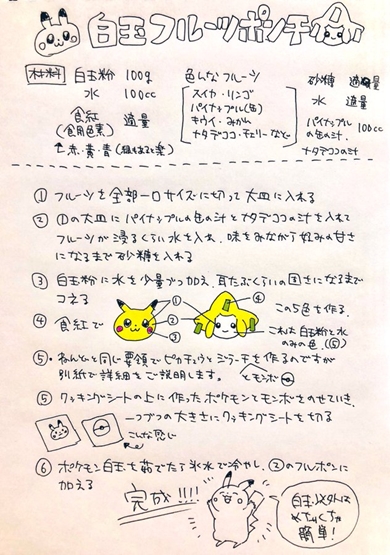 白玉フルーツポンチ
材料
白玉粉 100g
水 100cc
食紅 適量
(食用色素)
↑赤・黄・青
色んなフルーツ
スイカ・リンゴ
パイナップル(缶)
キウイ・みかん
ナタデココ・チェリーなど
砂糖 適量
水 適量
パイナップルの缶の汁 100cc
ナタデココの汁
① フルーツを全部一口サイズに切って大皿に入れる
② ①の大皿にパイナップルの缶の汁とナタデココの汁を入れて
フルーツが浸るくらい水を入れ、味をみながら好みの甘さ
になるまで砂糖を入れる
③ 白玉粉に水を少量ずつ加え、耳たぶくらいの固さになるまで
コネる
④ 食紅で
① ② ③ ④
この5色を作る。
これは白玉粉と水
のみの色。(⑤)
⑤・ねんどと同じ要領でピカチュウとジラーチを作るのですが
別紙で詳細をご説明します。
とモンボ
⑤ クッキングシートの上に作ったポケモンとモンボをのせていき、
一つずつの大きさにクッキングシートを切る
こんな感じ
⑥ ポケモン白玉を茹でたら氷水で冷やし、②のフルポンに
加える
完成!!!!
白玉
めちゃくちゃ
簡単!